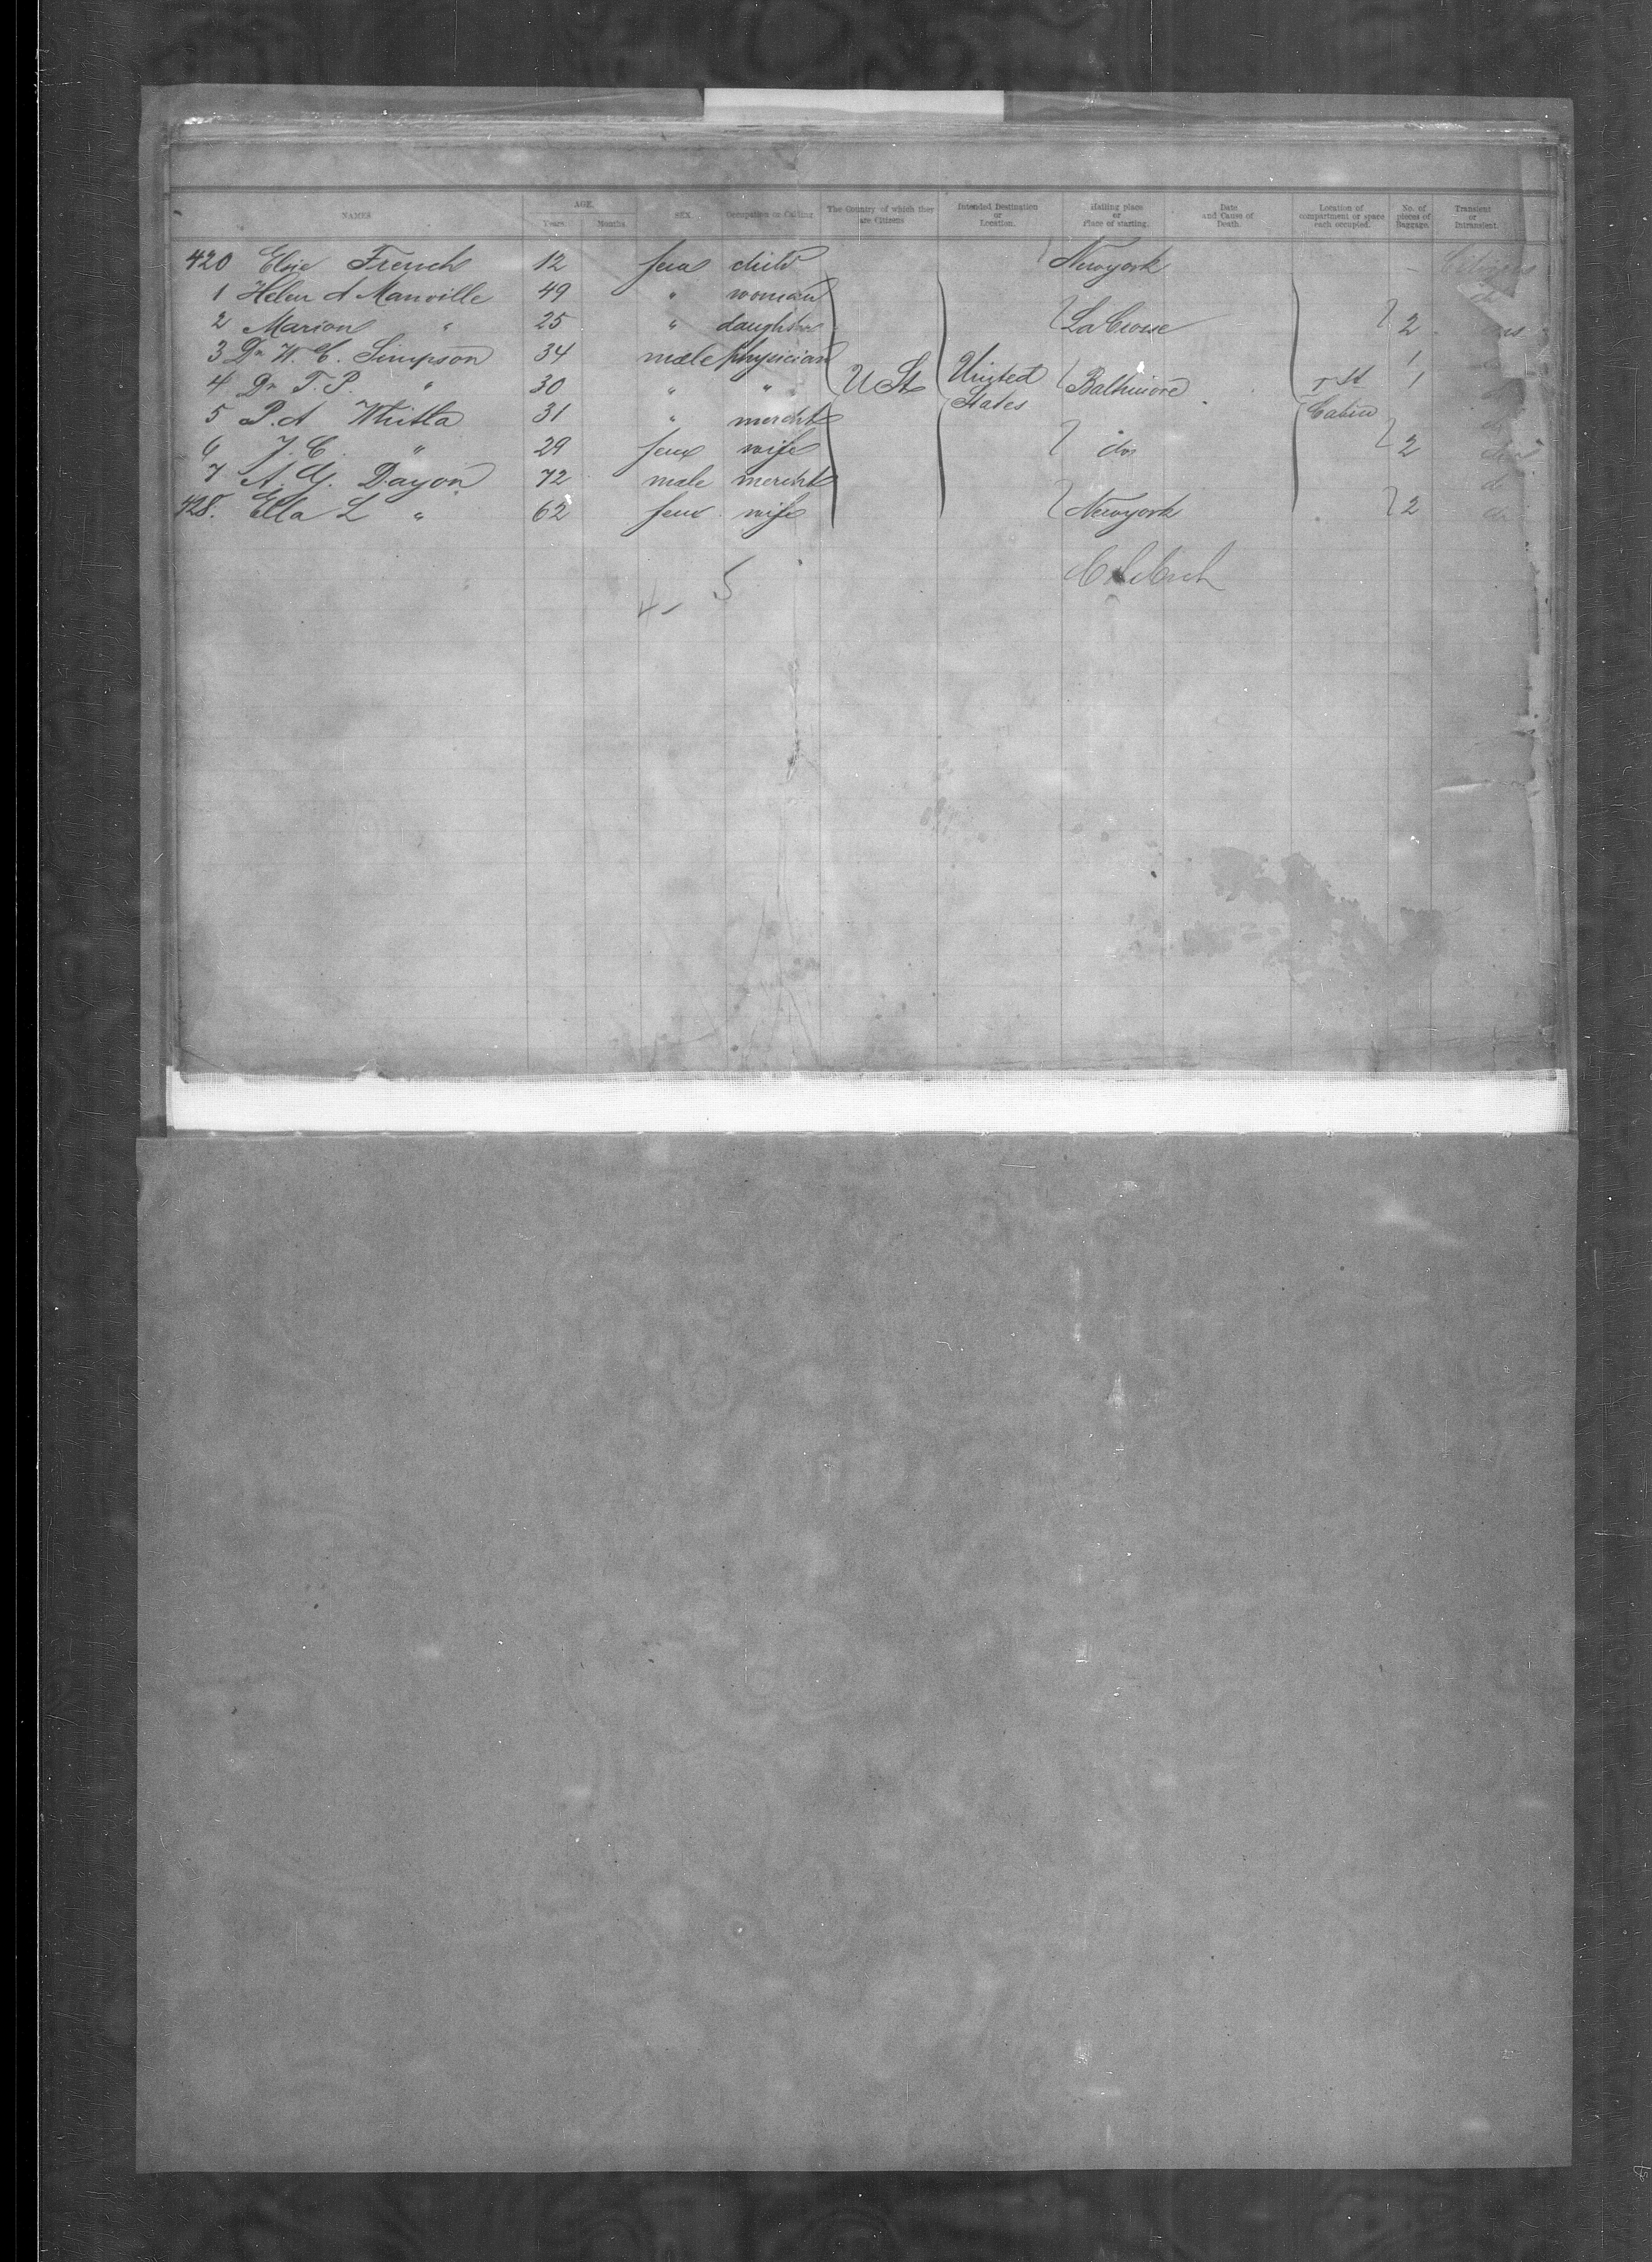 NAMES AGE. Years. Months. SEX. Occupation or Calling. The Country of which they are Citizens Intended Destination or Location. Hailing place or Place of starting. Date and Cause of Death. Location of compartment or space each occupied. No. of pieces of Baggage. Transient or Intransient.
420 Elsie French 12 fem child Newyork
1 Helen A Manville 49 " woman
2 Marion " 25 " daughter LaCrosse 2
3 Dr W. C. Simpson 34 male physician 1
4 Dr T. P. " 30 " " U St United States Baltimore 1st Cabin 1
5 P. A Whitla 31 " mercht
6 J. C. " 29 fem wife do 2
7 A. G. Dayon 72 male mercht
428. Ella L " 62 fem wife Newyork 2
4 5